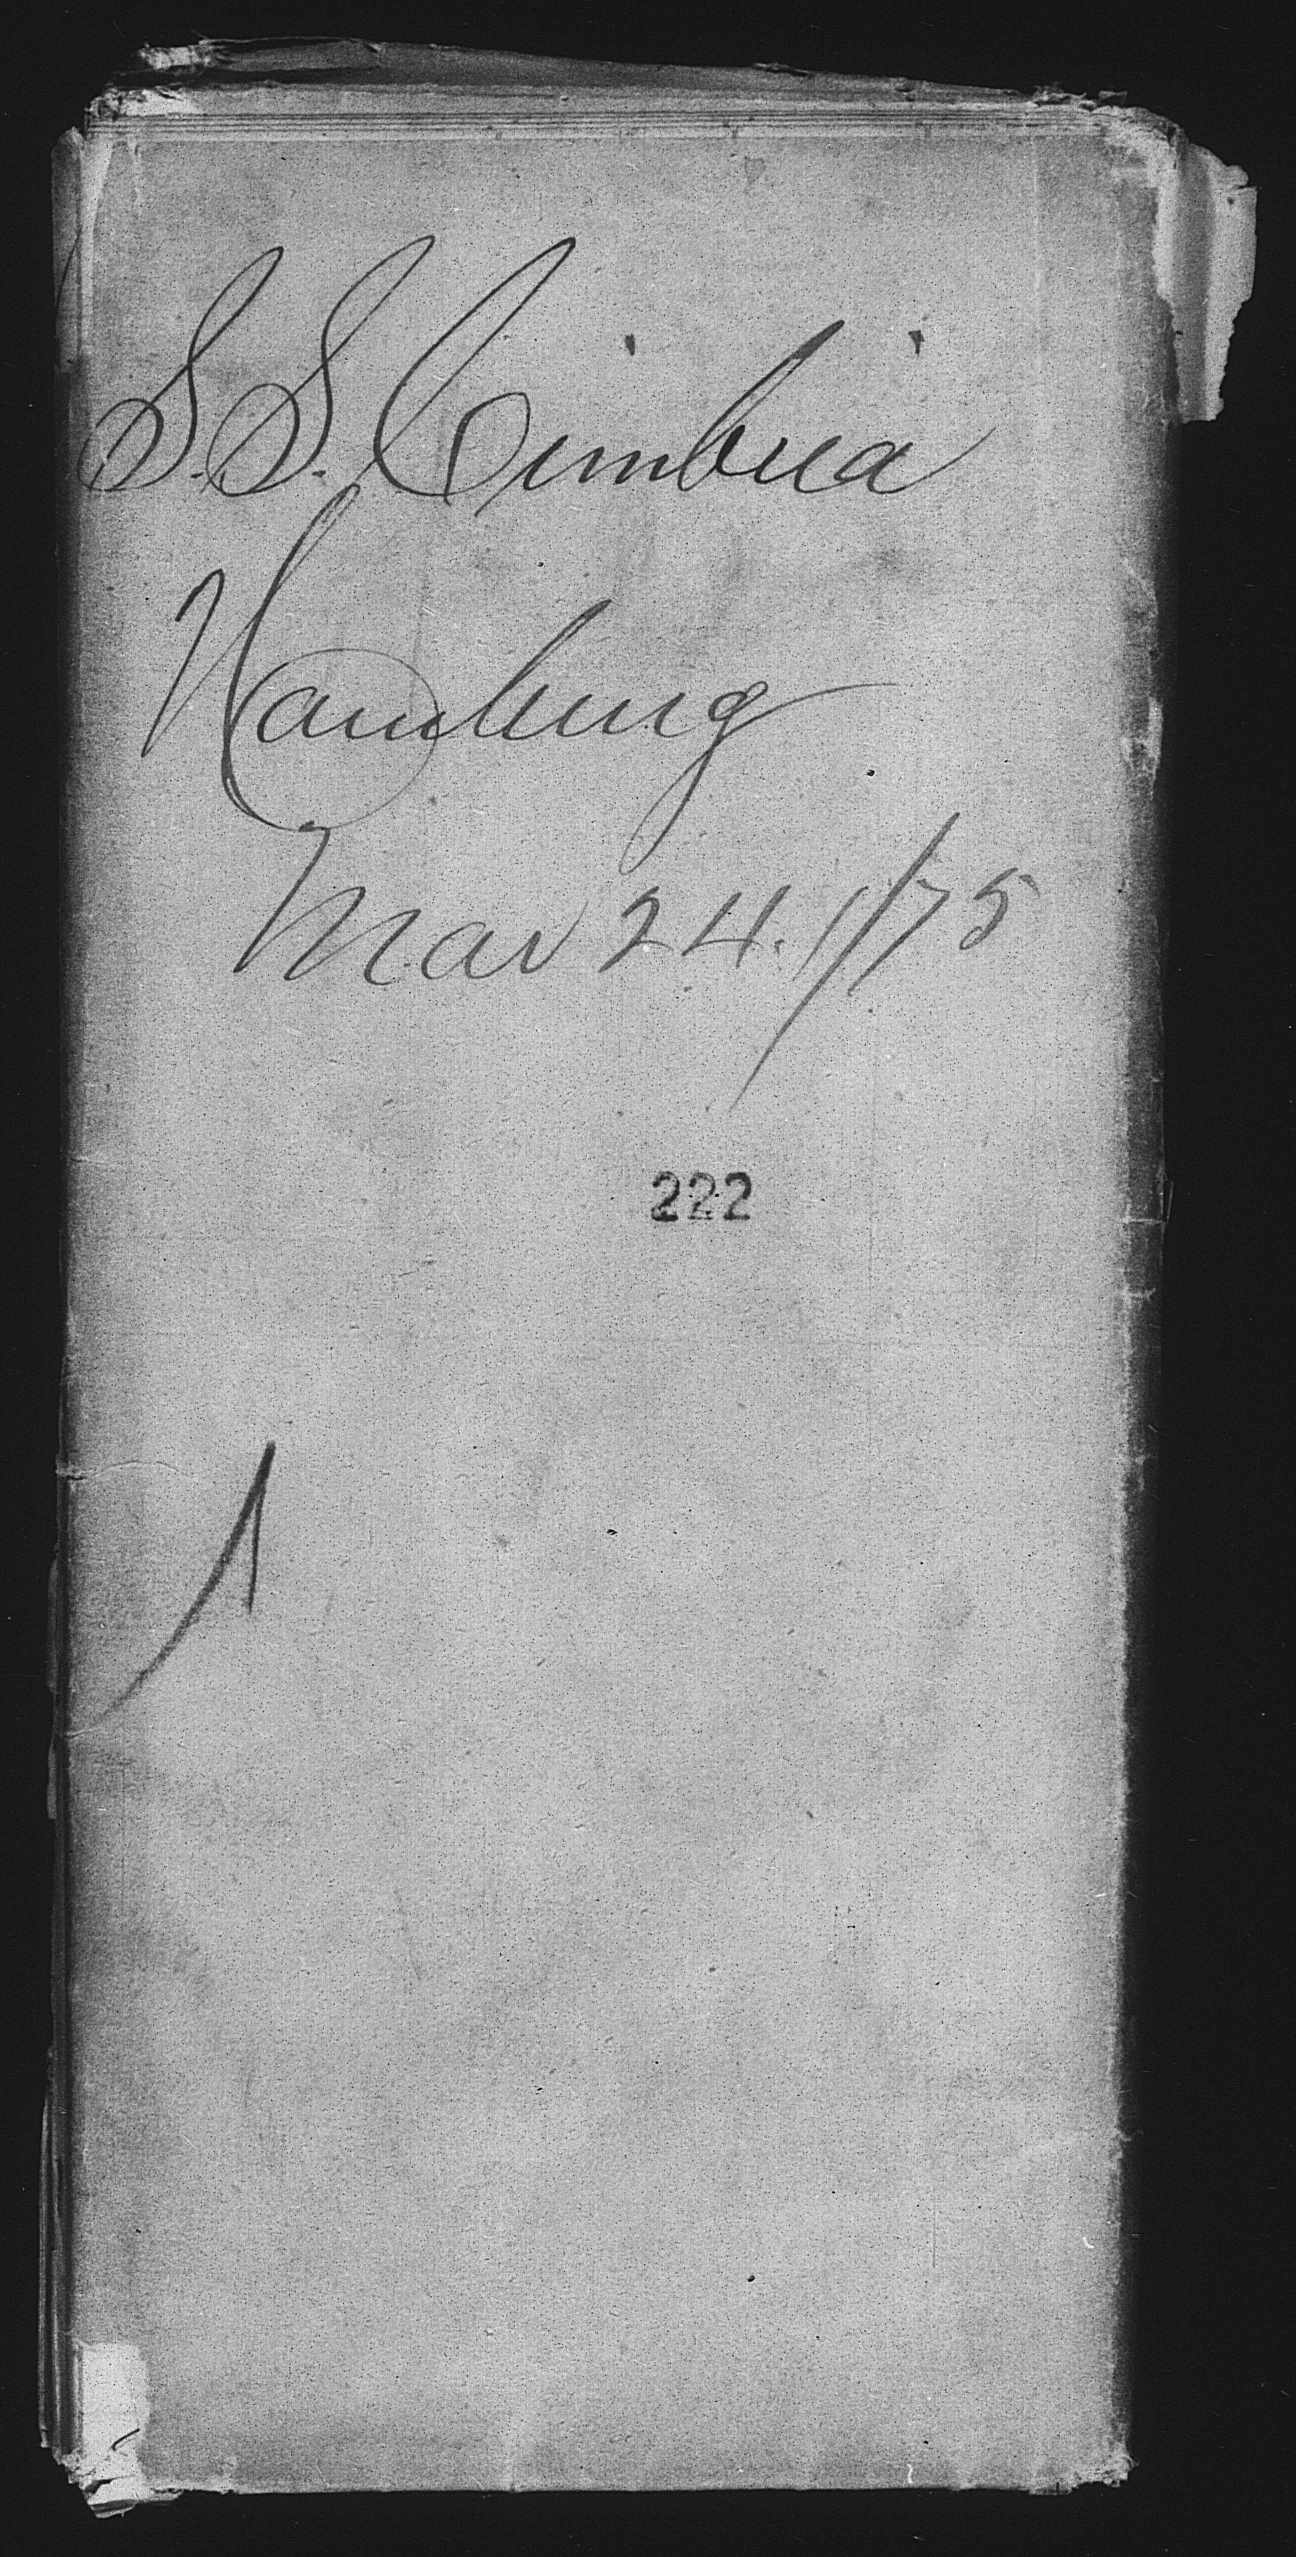 S.S. Cimbria
Hamburg
Mar 24. /75
222
1